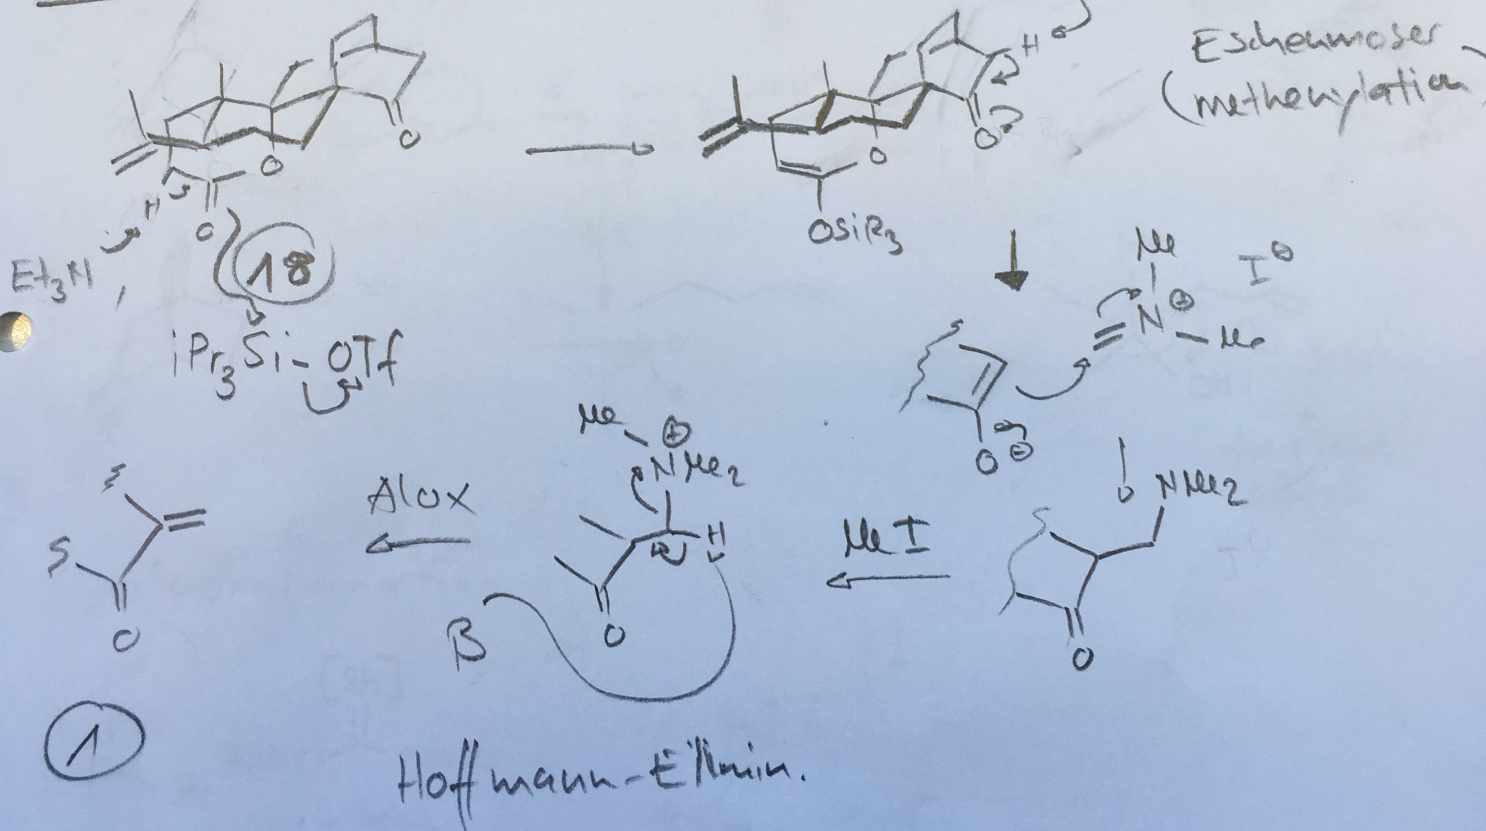 Eschenmoser
(methenylation
H
O
O
O
H
Et3N
18
iPr3Si-OTf
H
O
O
OSiR3
Me
I⊖
N⊕
Me
O⊖
NMe2
O
MeI
Me
⊕
NMe2
H
O
B
Alox
O
1
Hoffmann-Elimin.